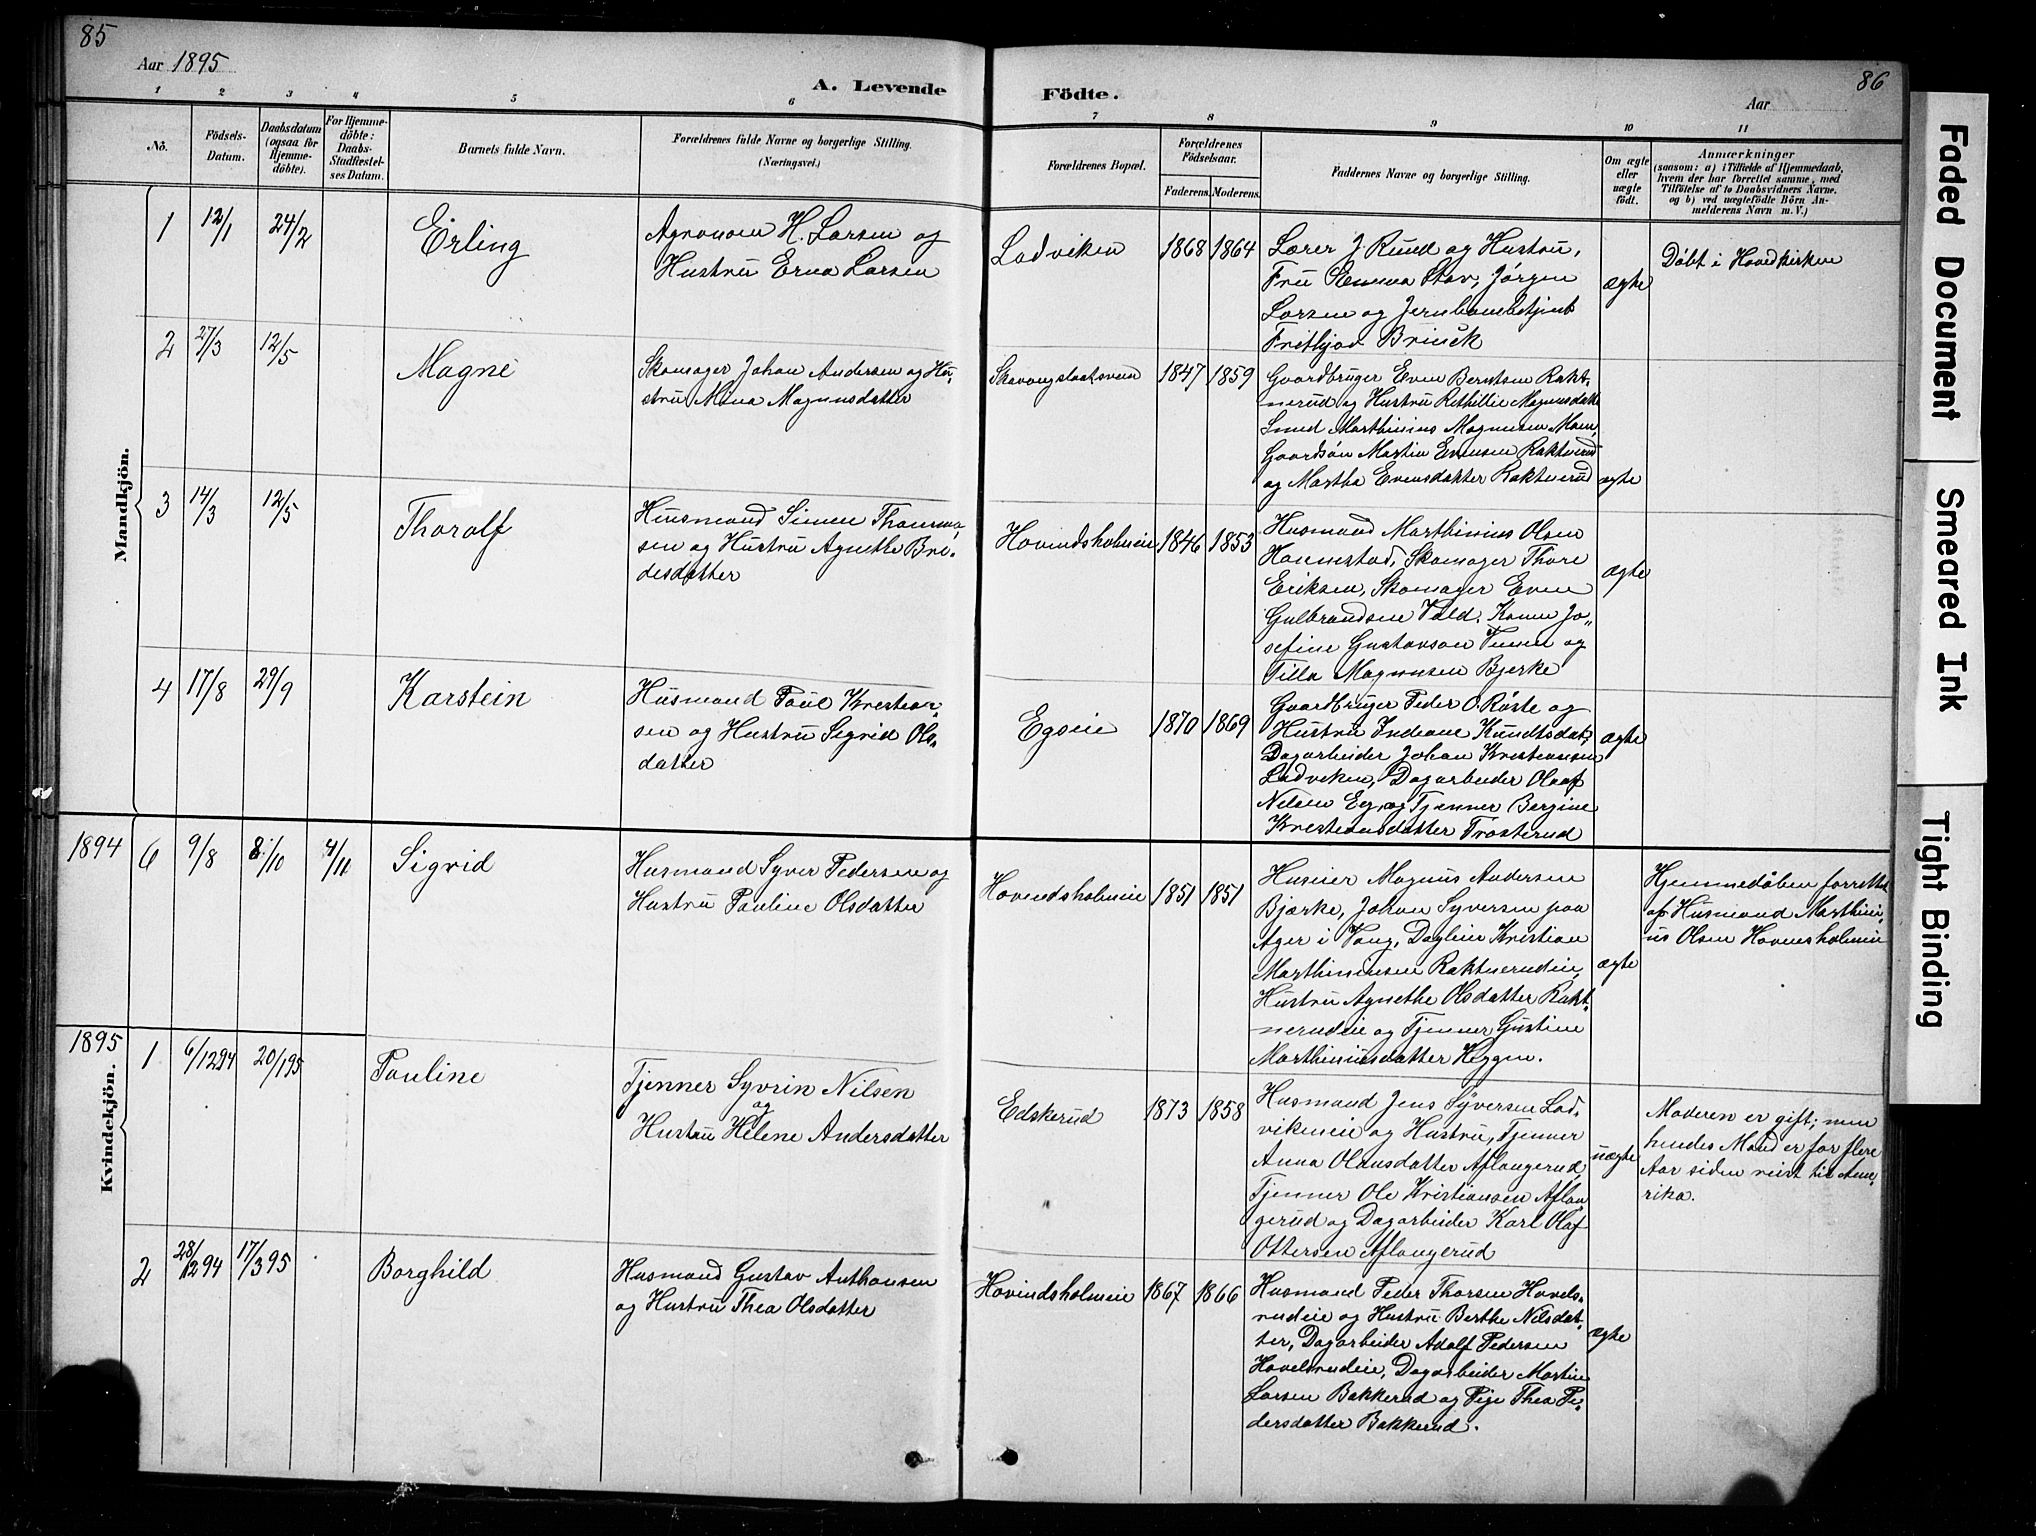 85
Aar 1895
A. Levende
Födte.
Aar
86
1 2 3 4 5 6 7 8 9 10 11
No.
Födsels-
Datum.
Daabsdatum
(ogsaa for
Hjemme-
döbte).
For Hjemme-
döbte:
Daabs-
Stadfæstel-
ses Datum.
Barnets fulde Navn.
Forældrenes fulde Navne og borgerlige Stilling.
(Næringsvei.)
Forældrenes Bopæl.
Forældrenes
Födselsaar.
Faderens. Moderens.
Faddernes Navne og borgerlige Stilling.
Om ægte
eller
uægte
født.
Anmærkninger
(saasom: a) i Tilfælde af Hjemmedaab,
hvem der har forrettet samme, med
Tilföielse af to Daabsvidners Navne,
og b) ved uægtefödte Börn An-
melderens Navn m. V.)
Mandkjön.
1 12/1 24/2 Erling
Agronom H. Larsen og
Hustru Erna Larsen
Ladviken 1868 1864
Lærer J. Ruud og Hustru,
Fru Emma Stav, Jørgen
Larsen og Jernbanebetjent
Frithjov
ægte
Døbt i Hovedkirken
2 27/3 12/5 Magne
Skomager Johan Andersen og Hu-
stru Mina Magnusdatter
1847 1859
Gaardbruger Even Berntsen Rakt-
nerud og Hustru Magnusdatt
Smed Marthinius Magnusen
Gaardsøn Martin Evensen Raktnerud
og Martha Evensdatter Raktnerud
ægte
3 14/3 12/5 Thoralf
Husmand Simen Thomas-
sen og Hustru Agnethe Bre-
desdatter
Hovindsholmeie 1846 1853
Husmand Marthinius Olsen
Skomager Thore
Eriksen, Skomager Even
Gulbrandsen Vold, Kone Jo-
sefine Gustavson og
Tilla Magnusen Bjerke
ægte
4 17/8 29/9 Karstein
Husmand Paul Kristian-
sen og Hustru Sigrid Ols-
datter
Egseie 1870 1869
Gaardbruger Peder O. Røste og
Hustru Indiane Knudtsdat,
Dagarbeider Johan Kristiansen
Ladviken, Dagarbeider Olaf
Nilsen Eg, og Tjenner Bergine
Kristiansdatter Trosterud
ægte
1894 6 9/8 8/10 4/11 Sigrid
Husmand Syver Pedersen og
Hustru Pauline Olsdatter
Hovindsholmeie 1851 1851
Huseier Magnus Andersen
Bjærke, Johan Syversen paa
Ager i Vang, Dagleier Kristian
Marthinusen Raktnerudeie,
Hustru Agnethe Olsdatter Rakt-
nerudeie og Tjenner Gustine
Marthiniusdatter Heggen.
ægte
Hjemmedåben forrettet
af Husmand Marthin-
us Olsen Hovinsholmeie
Kvindekjön.
1895 1 6/12 94 20/1 95 Pauline
Tjenner Syvrin Nilsen
og
Hustru Helene Andersdatter
Edskerud 1873 1858
Husmand Jens Syversen Lad-
vikeneie og Hustru, Tjenner
Anna Olausdatter Aflangerud,
Tjenner Ole Kristiansen Aflan
gerud og Dagarbeider Karl Olaf
Ottersen Aflangerud
uægte
Moderen er gift; men
hendes Mand er for flere
Aar siden reist til Ame-
rika.
2 28/12 94 17/3 95 Borghild
Husmand Gustav Anthonsen
og Hustru Thea Olsdatter
Hovindsholmeie 1867 1866
Husmand Peder Thorsen Hovels-
rudeie og Hustru Berthe Nilsdat-
ter, Dagarbeider Adolf Pedersen
Hovelsrudeie, Dagarbeider Martin
Larsen Bakkerud og Pige Thea Pe-
dersdatter Bakkerud.
ægte
Faded Document
Smeared Ink
Tight Binding